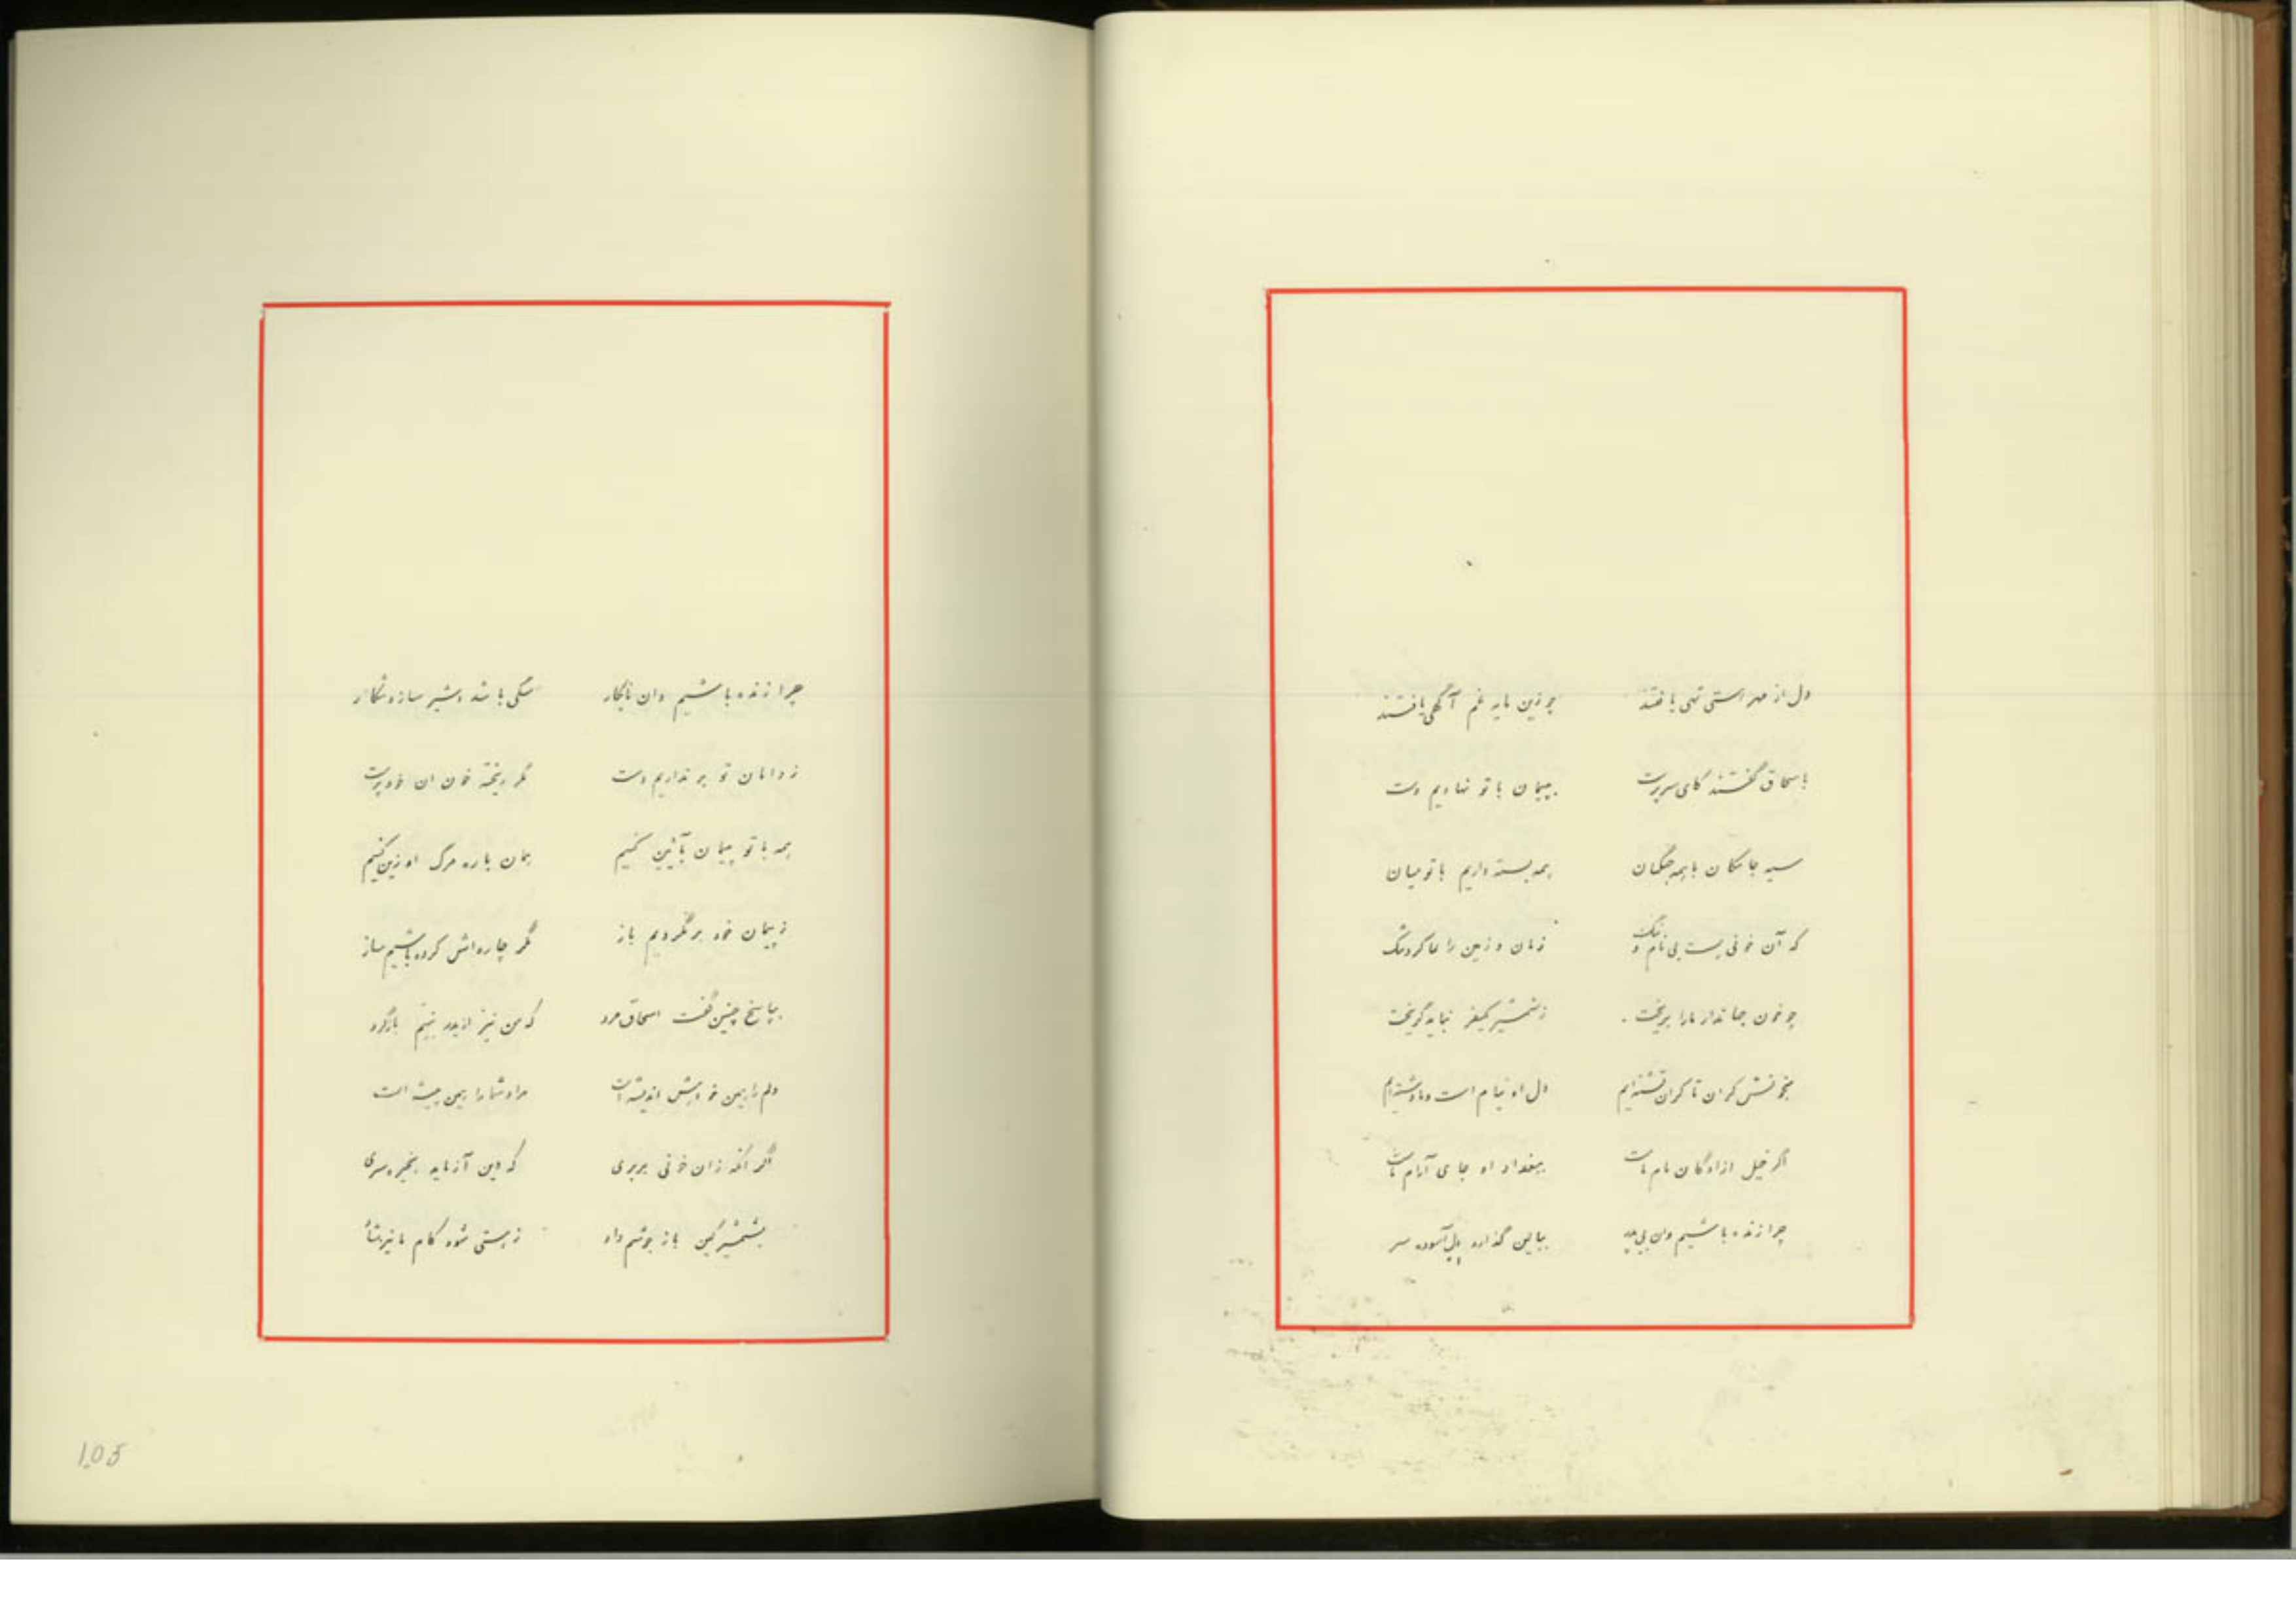 دل از مهر استی تهی یافتند چو زین مایه غم آگهی یافتند
باسحاق گفتند کای سرپرست بپیمان با تو نهادیم دست
سیه جامکان با همه جنگیان همه بسته داریم با تو میان
که آن خونی پست بی نام و ننگ زمان و زمین را بما کرد تنگ
چو خون جهاندار ما را بریخت ز شمشیر کیفر نباید گریخت
بخونش کران تا کران تشنه‌ایم دل او نیام است و ما دشنه‌ایم
اگر خیل ازادگان نام ماست ببغداد او جای آرام ماست
چرا زنده باشیم وان بی پدر ببالین گذارد بدل آسوده سر
چرا زنده باشیم وان نابکار سگی باشد و شیر سازد شکار
ز دامان تو بر نداریم دست مگر ریخته خون ان خودپرست
همه با تو پیمان بآئین کنیم همان باره مرگ او زین کنیم
ز پیمان خود برنگردیم باز مگر چاره‌اش کرده باشیم ساز
بپاسخ چنین گفت اسحاق مرد که من نیز از بدد بینم بازگرد
دلم را همین خواهش اندیشه است مراد شما را همین پیشه است
اگر آنکه زان خونی بربری که این آزماید بخیره سری
بشمشیر کین باز جوئیم داد ز پستی شود کام ما نیز شاد
105